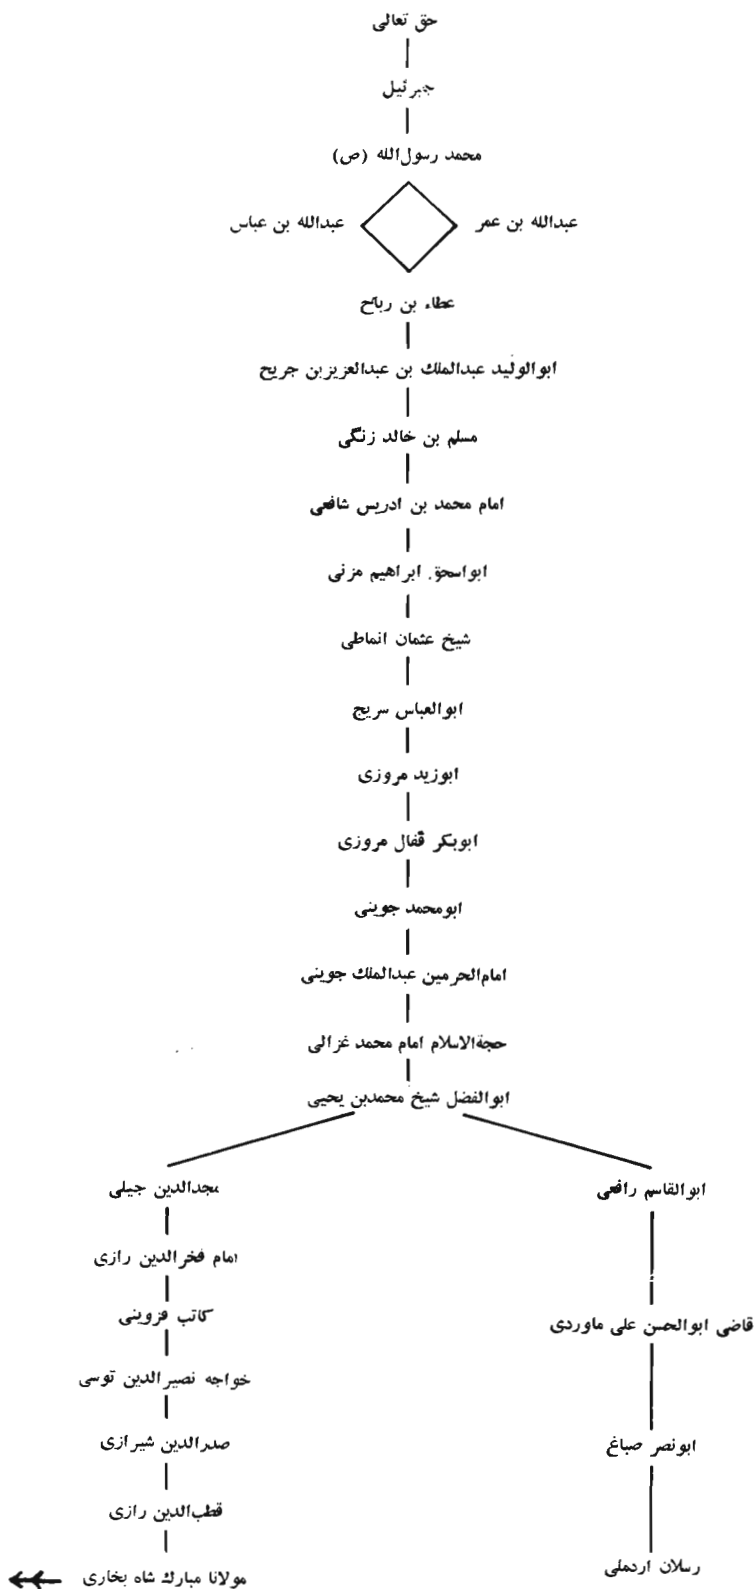 حق تعالی
جبرئیل
محمد رسول‌الله (ص)
عبدالله بن عمر
عبدالله بن عباس
عطاء بن رباح
ابوالولید عبدالملك بن عبدالعزیزبن جریح
مسلم بن خالد زنگی
امام محمد بن ادریس شافعی
ابواسحق ابراهیم مزنی
شیخ عثمان انماطی
ابوالعباس سریج
ابوزید مروزی
ابوبکر قفال مروزی
ابومحمد جوینی
امام‌الحرمین عبدالملك جوینی
حجةالاسلام امام محمد غزالی
ابوالفضل شیخ محمدبن یحیی
ابوالقاسم رافعی
مجدالدین جیلی
امام فخرالدین رازی
کاتب قزوینی
قاضی ابوالحسن علی ماوردی
خواجه نصیرالدین توسی
صدرالدین شیرازی
ابونصر صباغ
قطب‌الدین رازی
رسلان اردملی
مولانا مبارك شاه بخاری